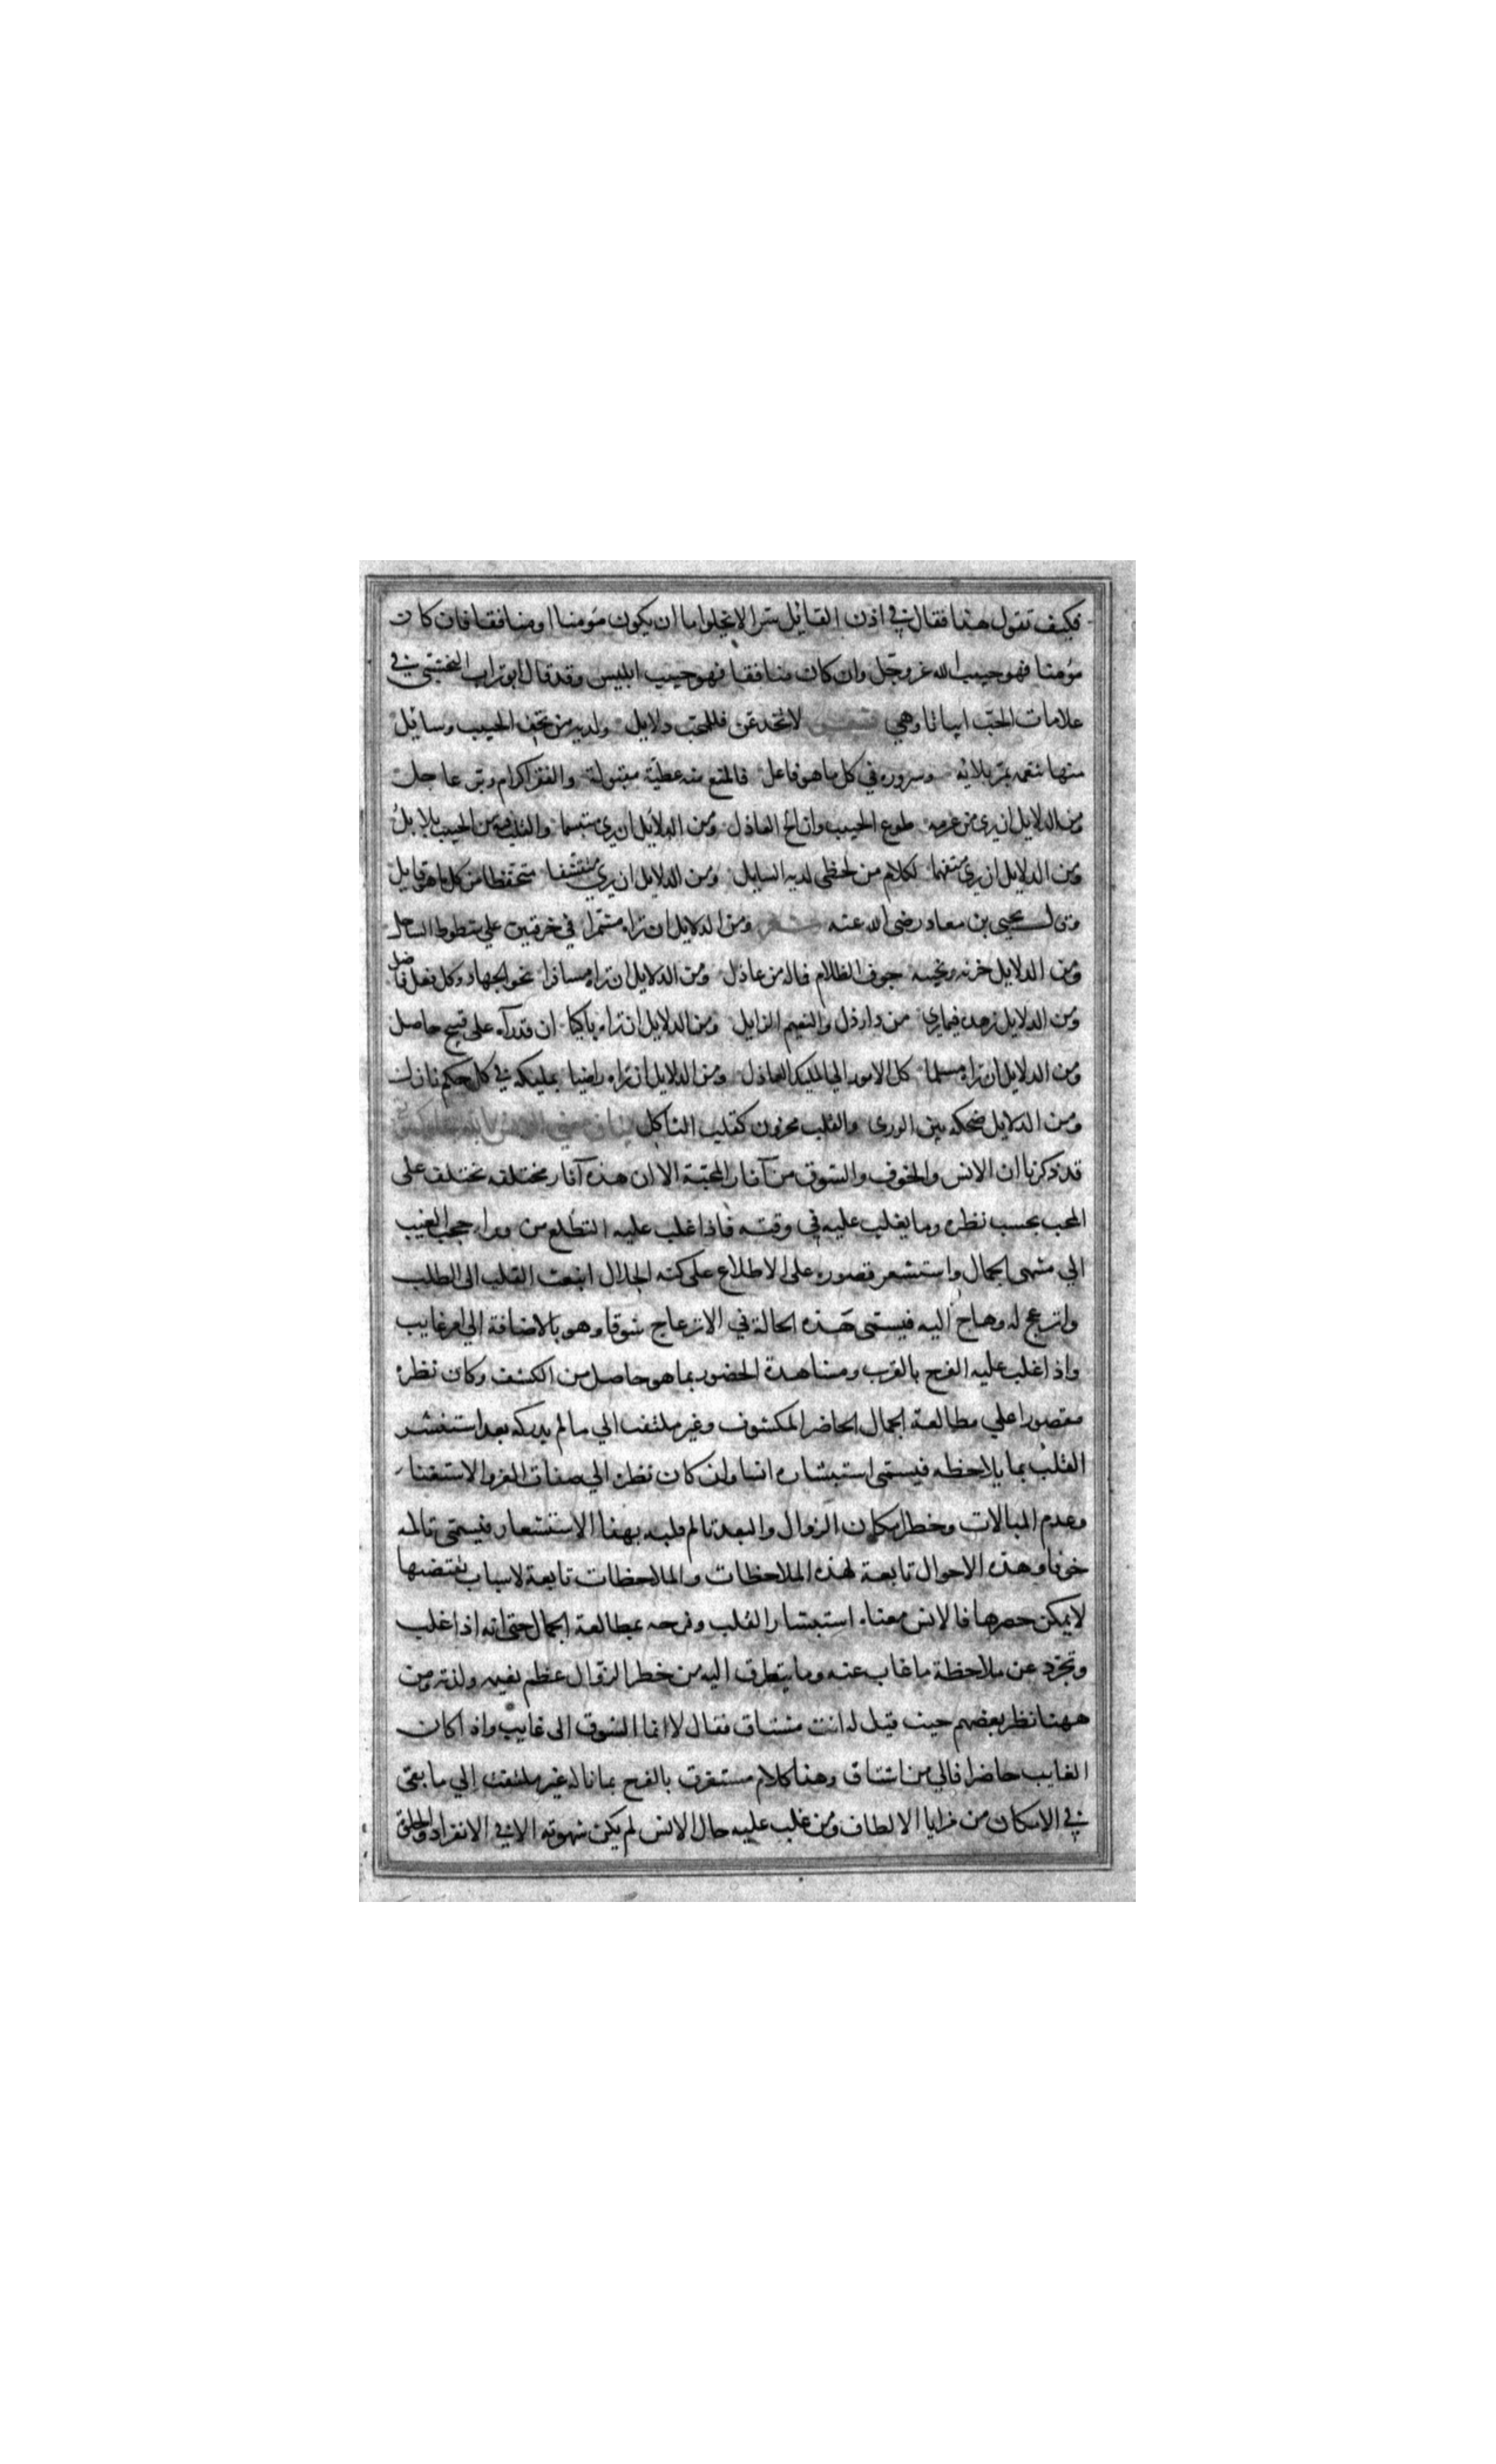 فكيف تقول هذا فقال في اذن القائل سرا لا يخلوا ما ان يكون مؤمنا او منافقا فان كان
مؤمنا فهو حبيب الله عز وجل وان كان منافقا فهو حبيب ابليس وقد قال ابو تراب النخشبي في
علامات الحب ابياتا وهي لا تخدعن فللمحب دلايل ولديه من تحف الحبيب وسائل
منها تنعمه بمر بلائه وسروره في كل ما هو فاعل فالمنع منه عطية مقبولة والفقر اكرام وبر عاجل
ومن الدلايل ان يرى من عزمه طوع الحبيب وان الح العاذل ومن الدلايل ان يرى متبسما والقلب فيه من الحبيب بلابل
ومن الدلايل ان يرى متفهما لكلام من يحظى لديه السايل ومن الدلايل ان يرى متقشفا متحفظا من كل ما هو قايل
وقال يحيى بن معاد رضى الله عنه ومن الدلايل ان تراه مشمرا في خرقتين على شطوط الساحل
ومن الدلايل حزنه ونحيبه جوف الظلام فماله من عاذل ومن الدلايل ان تراه مسافرا نحو الجهاد وكل فعل فاضل
ومن الدلايل زهده فيما يرى من دار ذل والنعيم الزايل ومن الدلايل ان تراه باكيا ان قد رآه على قبيح حاصل
ومن الدلايل ان تراه مسلما كل الامور الى المليك العادل ومن الدلايل ان تراه راضيا بمليكه في كل حكم نازل
ومن الدلايل ضحكه بين الورى والقلب محزون كقلب الثاكل بيان معنى الانس بالله
قد ذكرنا ان الانس والخوف والشوق من آثار المحبة الا ان هذه آثار مختلفة تختلف على
المحب بحسب نظره وما يغلب عليه في وقته فاذا غلب عليه التطلع من وراء حجب الغيب
الي منتهى الجمال واستشعر قصوره على الاطلاع على كنه الجلال انبعث القلب الى الطلب
وانزعج له وهاج اليه فيسمى هذه الحالة في الانزعاج شوقا وهو بالاضافة الي امر غايب
واذا غلب عليه الفرح بالقرب ومشاهدة الحضور بما هو حاصل من الكشف وكان نظره
مقصورا علي مطالعة الجمال الحاضر المكشوف وغير ملتفت الي ما لم يدركه بعد استبشر
القلب بما يلاحظه فيسمى استبشاره انسا وان كان نظره الي صفات العز والاستغناء
وعدم المبالات وخطر امكان الزوال والبعد تالم قلبه بهذا الاستشعار فيسمى تالمه
خوفا وهذه الاحوال تابعة لهذه الملاحظات والملاحظات تابعة لاسباب تقتضيها
لا يمكن حصرها فالانس معناه استبشار القلب وفرحه بمطالعة الجمال حتى انه اذا غلب
وتجرد عن ملاحظة ما غاب عنه وما يتطرق اليه من خطر الزوال عظم نعيمه ولذته ومن
ههنا نظر بعضهم حيث قيل له انت مشتاق فقال لا انما الشوق الى غايب واذا كان
الغايب حاضرا فالي من اشتاق وهذا كلام مستغرق بالفرح بما ناله غير ملتفت الي ما بقى
في الامكان من مزايا الالطاف ومن غلب عليه حال الانس لم يكن شهوته الا في الانفراد والخلوة